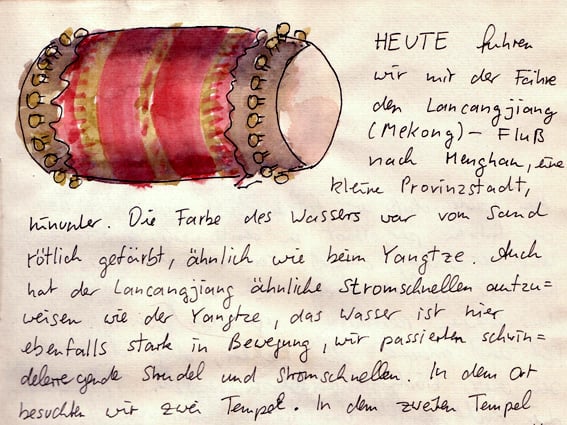 HEUTE fuhren
wir mit der Fähre
den Lancangjiang
(Mekong)- Fluß
nach Menghan, eine
kleine Provinzstadt,
hinunter. Die Farbe des Wassers war vom Sand
rötlich gefärbt, ähnlich wie beim Yangtze. Auch
hat der Lancangjiang ähnliche Stromschnellen aufzu=
weisen wie der Yangtze, das Wasser ist hier
ebenfalls stark in Bewegung, wir passierten schwin=
delerregende Strudel und Stromschnellen. In dem Ort
besuchten wir zwei Tempel. In dem zweiten Tempel